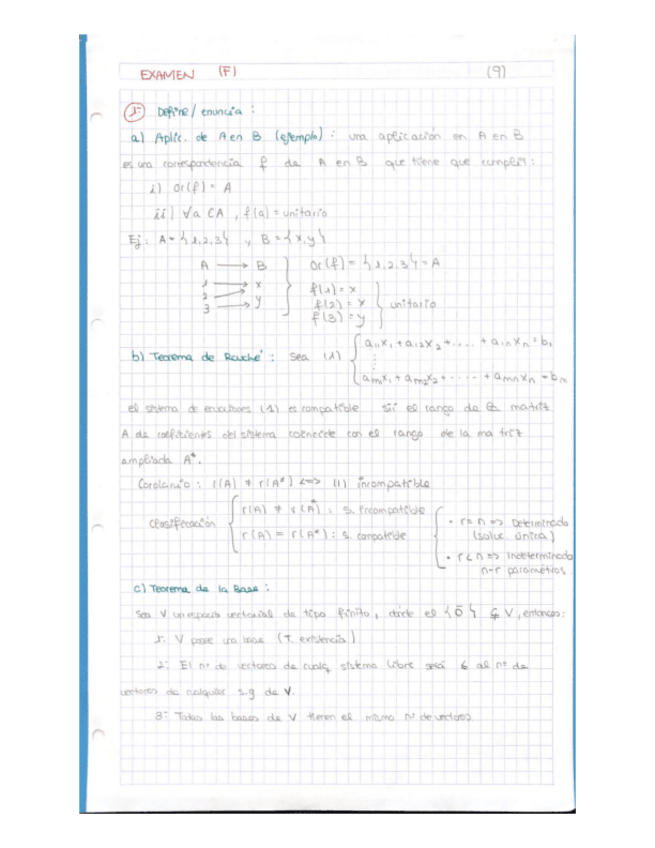 EXAMEN (F) (9)
1- Define / enuncia :
a) Aplic. de A en B (ejemplo) : una aplicación en A en B
es una correspondencia f de A en B que tiene que cumplir :
i) Or(f) = A
ii) ∀a ⊂ A , f(a) = unitario
Ej : A = {1,2,3} y B = {x,y}
A → B Or(f) = {1,2,3} = A
1 x f(1) = x
2 y f(2) = x unitario
3 f(3) = y
b) Teorema de Rouché : Sea (1) { a₁₁x₁ + a₁₂x₂ + .... + a₁ₙxₙ = b₁
⋮
aₘ₁x₁ + aₘ₂x₂ + ..... + aₘₙxₙ = bₘ
el sistema de ecuaciones (1) es compatible sii el rango de la matriz
A de coeficientes del sistema coincide con el rango de la matriz
ampliada A*.
Corolario : r(A) ≠ r(A*) <=> (1) incompatible
Clasificación { r(A) ≠ r(A*) : s. incompatible
r(A) = r(A*) : s. compatible { • r = n => Determinado
(soluc. única)
• r < n => Indeterminado
n-r parámetros.
c) Teorema de la Base :
Sea V un espacio vectorial de tipo finito, donde el {0̄} ⊊ V, entonces :
1- V posee una base (T. existencia)
2- El nº de vectores de cualq. sistema libre será ≤ al nº de
vectores de cualquier s.g de V.
3- Todas las bases de V tienen el mismo nº de vectores.